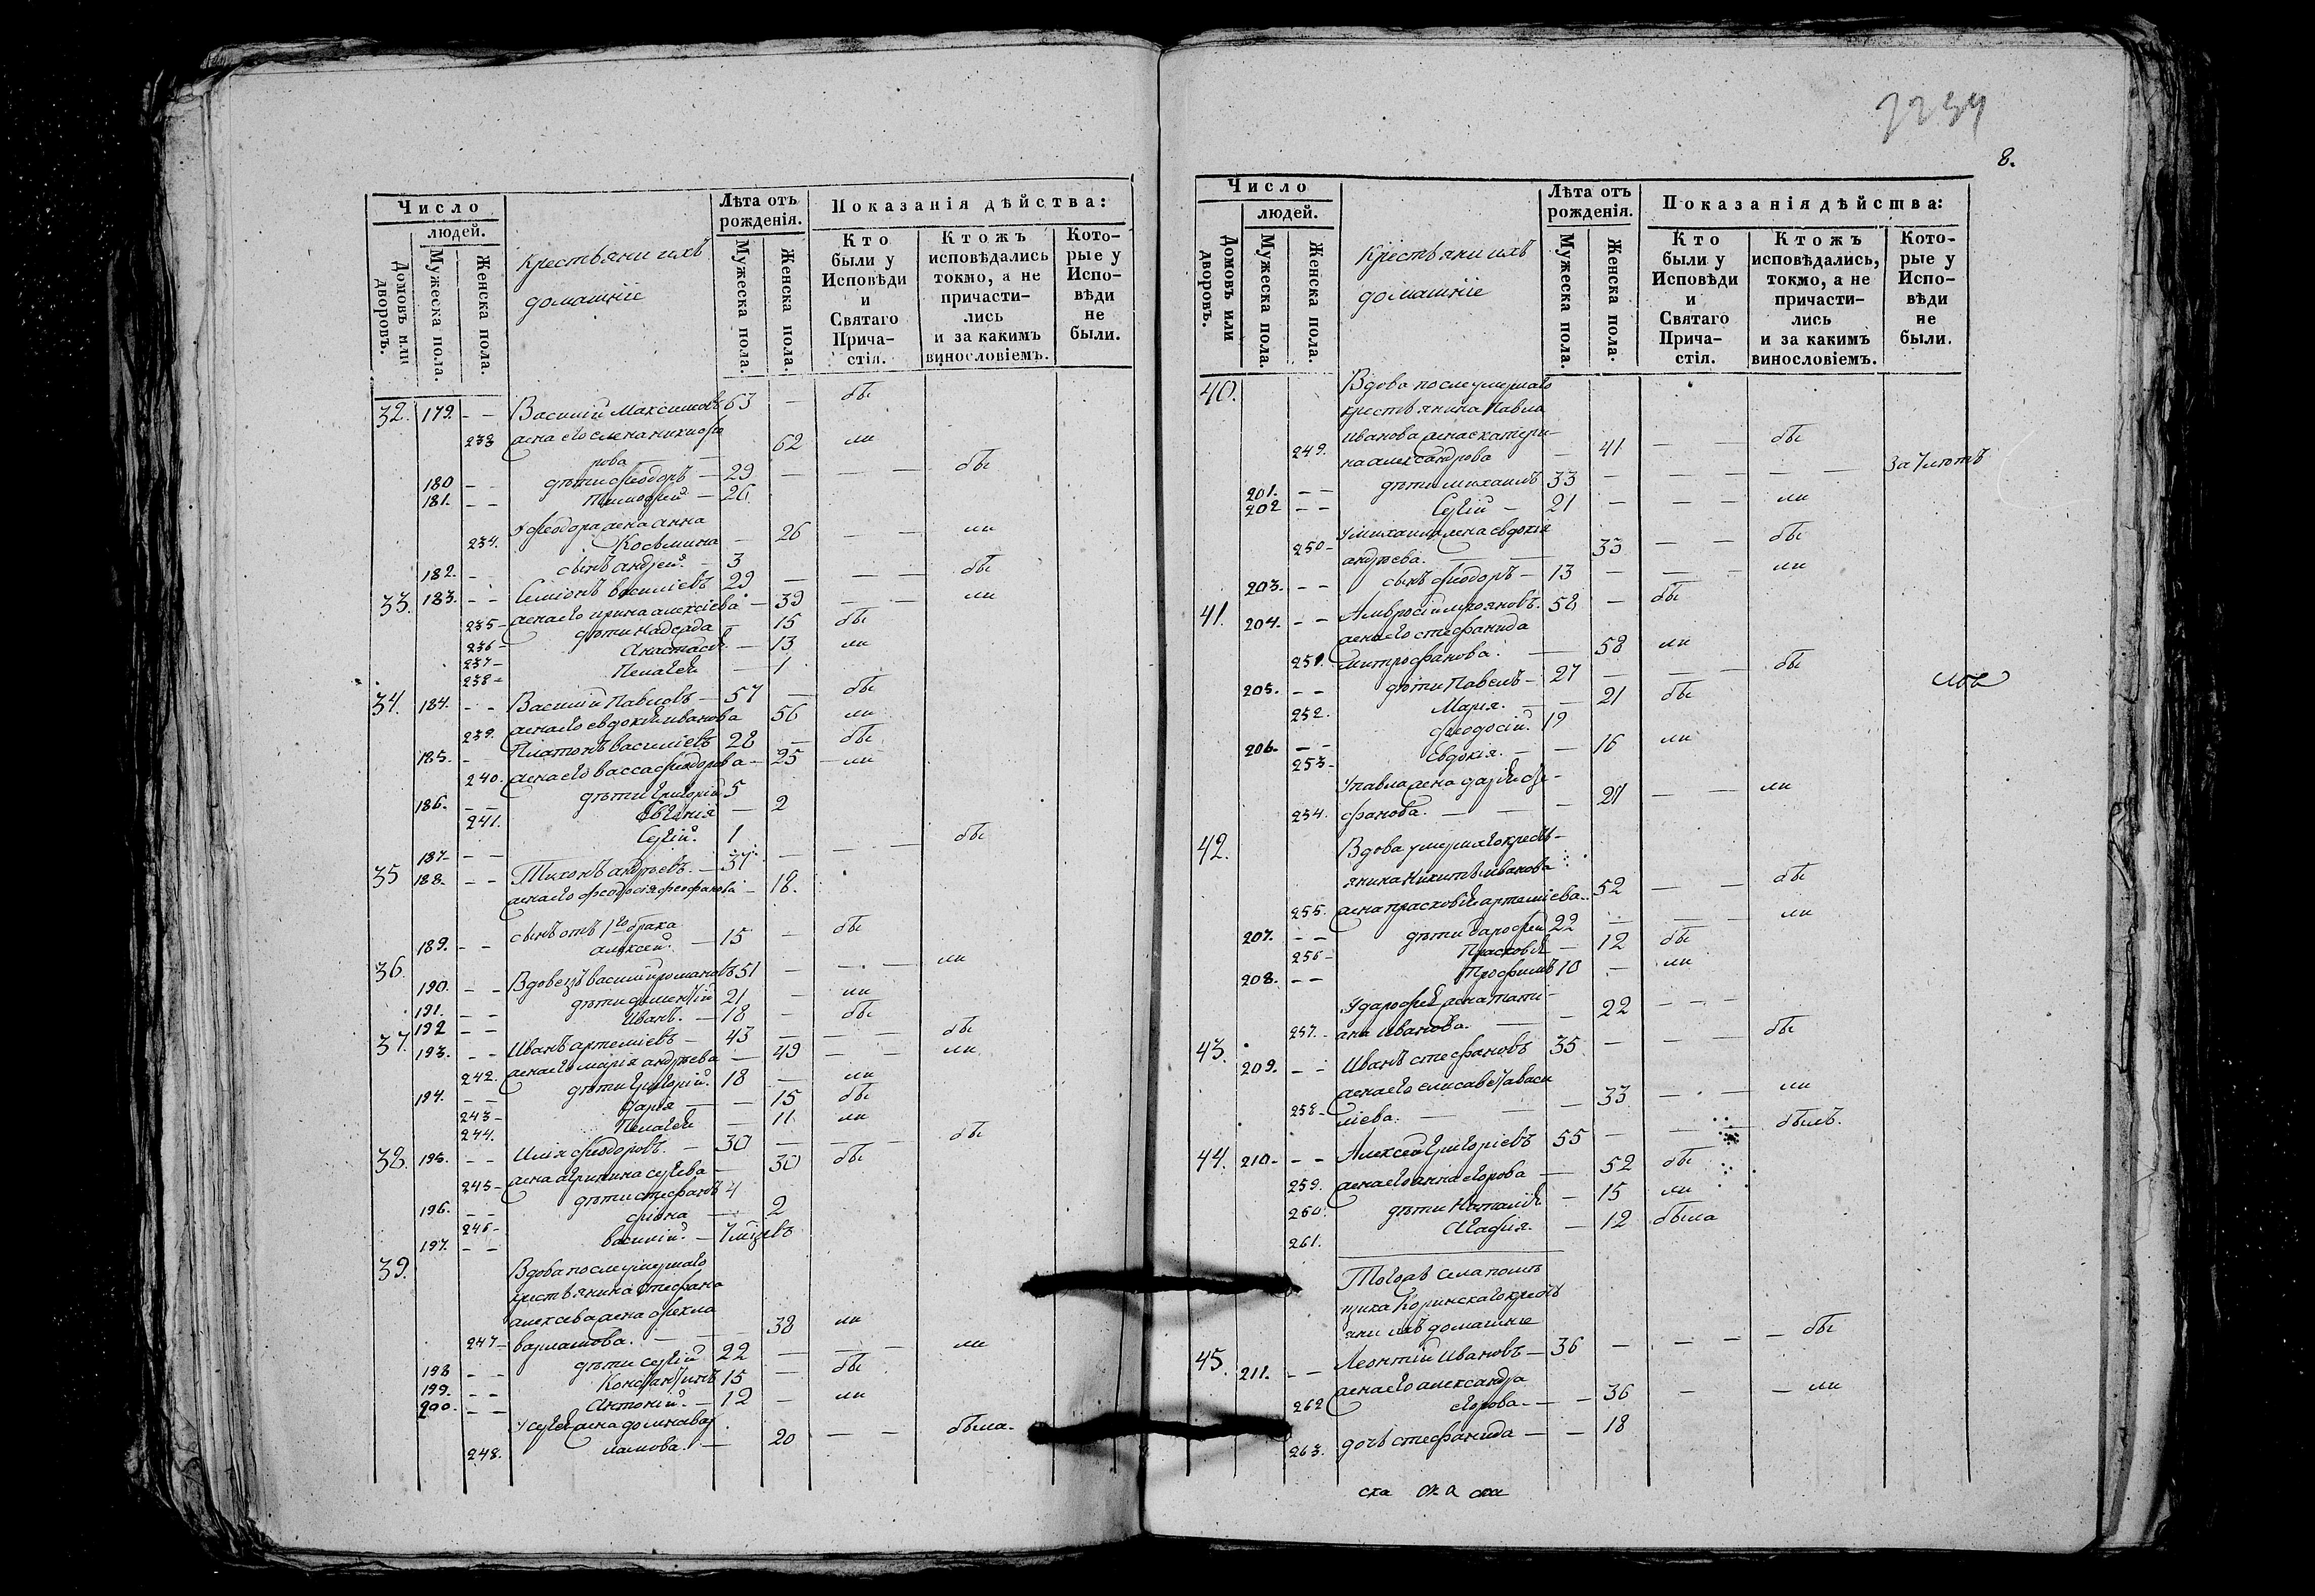 Число
людей.
Домовъ или дворовъ.
Мужеска пола.
Женска пола.
Крестьяни ихъ
домашніе
Лѣта отъ рожденія.
Мужеска пола.
Женска пола.
Показанія дѣйства:
Кто были у Исповѣди и Святаго Прича-стія.
Ктожъ исповѣдались токмо, а не причасти-лись и за какимъ винословіемъ.
Кото-рые у Испо-вѣди не были.
32. 179. - - Василий Максимовъ 63 — бы
233 жена его елена никифо
рова — 62 ли
180 - - дѣти феодоръ — 29 — — — бы
181. - - Тимофей — 26
У феодора жена анна
234. Косьмина — 26 — — ли
182. - сынъ андрей. — 3
33. 183. - - Симіонъ василіевъ 29 — — — бы
235 - жена его ирина алексіева — 39 — — ли
236 - дѣти Надежда — 15 бы
237 - Анастасія — 13 ли
238 - Пелагея — 1
34. 184. - - Василій Павловъ — 57 — бы
239. жена его евдокія иванова 56 ли
185. - Платонъ василіевъ 28 — бы
240. жена его васса феодорова — 25 — ли
186. - - дѣти григорій 5
241. Евгенія — 2
187 - - - Сергій. 1
35 188 - - - Тихонъ андреевъ. — 37 — — — бы
жена его феодосія феофанова — 18.
сынъ отъ 1го брака
189. - - алексей. — 15 — бы
36. 190. - - Вдовецъ василий романовъ 51 — — — ли
191. - - дѣти 21 — ли
192 - - Иванъ. — 18 — бы
37. 193. - - Иванъ артеміевъ — 43 — — бы
242. жена его марія андреева — 49 — — ли
194. - - дѣти григорій. 18 — ли
243 - дарія — — 15 бы
244. Пелагея — 11 ли
38. 195. - - Илія феодоровъ. — 30 — — — бы
245 - жена агрипина сергеева — 30 бы
196. - - дѣти стефанъ 4
246 - — 2
197. - - василий. — 7 міцевъ
39. Вдова после умершаго
крестьянина Стефана
алексеева жена фекла
247 - варламова. — — — 38 ли
198 - - дѣти сергій 22 — — — ли
199. - - Константинъ 15 — бы
200 - - - Антоній. — 12 — ли
У сергея жена
248. ламова. — 20 — — была.
2234
8.
Число
людей.
Домовъ или дворовъ.
Мужеска пола.
Женска пола.
Крестьяни ихъ
домашніе
Лѣта отъ рожденія.
Мужеска пола.
Женска пола.
Показанія дѣйства:
Кто были у Исповѣди и Святаго Прича-стія.
Ктожъ исповѣдались, токмо, а не причасти-лись и за какимъ винословіемъ.
Кото-рые у Испо-вѣди не были.
40. Вдова после умершаго
крестьянина Павла
иванова жена екатери-
249. на александрова — 41 — — бы
201. - - дѣти михаилъ 33 — — — — за
202 - - Сергій — 21 — — ли
У михаила жена евдокія
250 - андреева. — — 33 — — бы
203. - - сынъ феодоръ — 13 — — ли
41. 204. - - Амвросій 58 — бы
жена его стефанида
251. митрофанова. — 58 ли
205. - - дѣти Павелъ — 27 — — бы
252. Марія. — — 21 бы
206. - - феодосій. 19
253 - Евдокія. — — 16 ли
У павла жена дарія
254. фанова. — — — 21 — — ли
42. Вдова умершаго крест-
янина Никиты иванова
255. жена прасковія артеміева. 52 — — бы
207. - - дѣти дарофей 22 — — — ли
256 - Прасковія — 12 бы
208. - - Трофимъ 10 — ли
У дарофея жена тати-
257. ана Иванова. — — 22 — — —
43. 209. - - Иванъ стефановъ 35 — — — бы
жена его елисавета васи
258 - ліева. — — — 33 — — — ли
44. 210 - - - Алексей григоріевъ 55 — — — былъ.
259. жена его анна егорова — 52 бы
260. дѣти Наталія — 15 ли
261. Агафія. — 12 была
Тогожъ села помѣ
щика крестъ
яни ихъ домашніе
45. 211. - - Леонтій Ивановъ — 36 — — — — бы
жена его александра
262 егорова. — — 36 — — ли
263. дочь стефанида — — 18